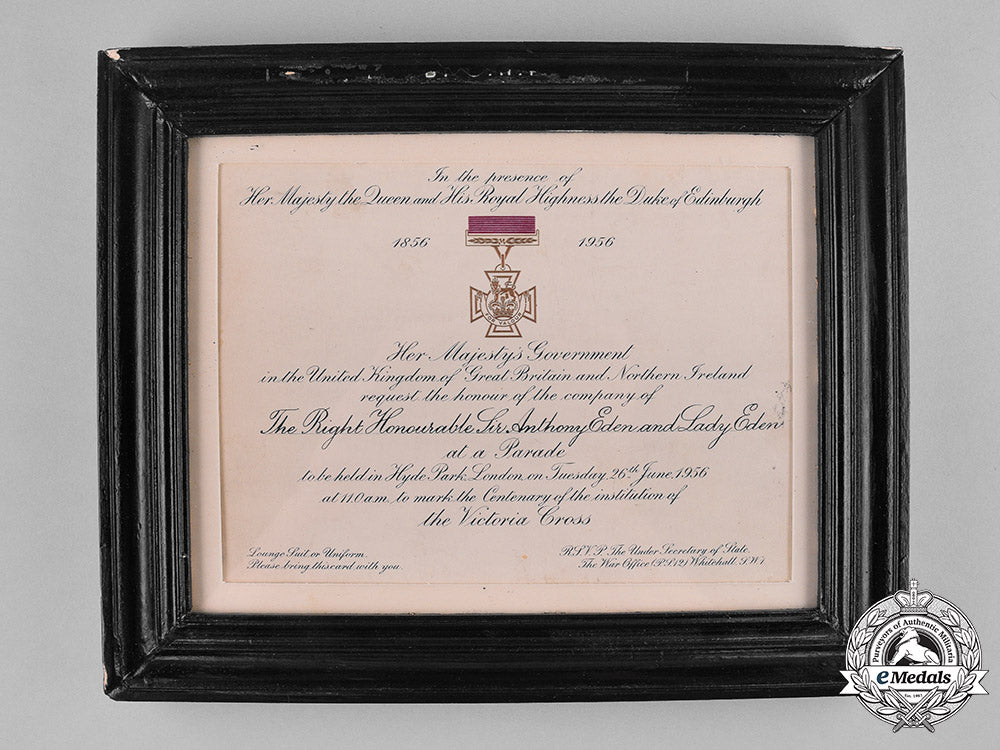 In the presence of
Her Majesty the Queen and His Royal Highness the Duke of Edinburgh
1856 1956
FOR VALOUR
Her Majesty's Government
in the United Kingdom of Great Britain and Northern Ireland
request the honour of the company of
The Right Honourable Sir Anthony Eden and Lady Eden
at a Parade
to be held in Hyde Park, London, on Tuesday, 26th June, 1956
at 11.0 a.m. to mark the Centenary of the institution of
the Victoria Cross
Lounge Suit or Uniform.
Please bring this card with you.
R.S.V.P. The Under Secretary of State.
The War Office (P.S.12) Whitehall, S.W.1
Purveyors of Authentic Militaria
eMedals
Est. 1967